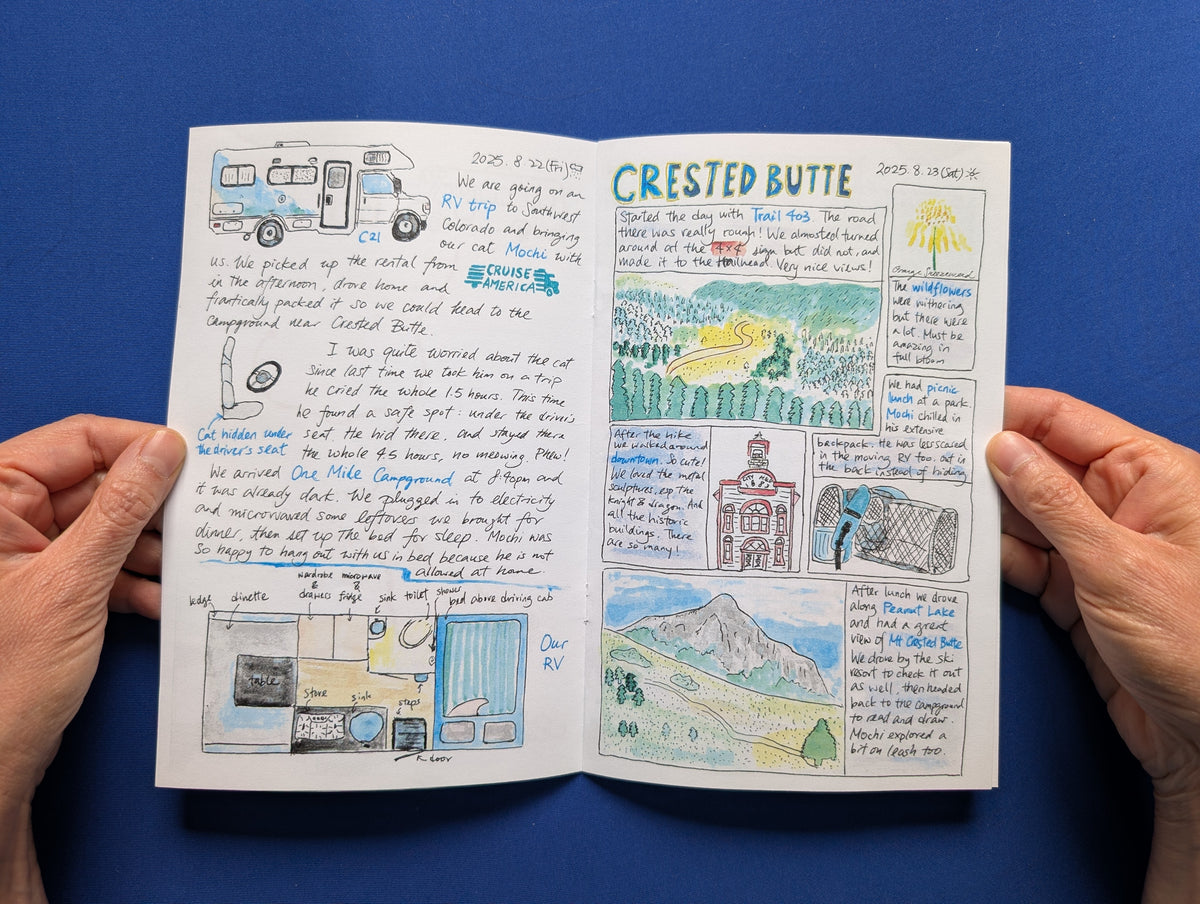 2025. 8. 22 (Fri)
We are going on an
RV trip to Southwest
Colorado and bringing
our cat Mochi with
C21
us. We picked up the rental from
CRUISE
AMERICA
in the afternoon, drove home and
frantically packed it so we could head to the
campground near Crested Butte.
I was quite worried about the cat
since last time we took him on a trip
he cried the whole 1.5 hours. This time
he found a safe spot: under the driver's
seat. He hid there, and stayed there
the whole 4.5 hours, no meowing. Phew!
Cat hidden under
the driver's seat
We arrived One Mile Campground at 8:40pm and
it was already dark. We plugged in to electricity
and microwaved some leftovers we brought for
dinner, then set up the bed for sleep. Mochi was
so happy to hang out with us in bed because he is not
allowed at home.
ledge
dinette
wardrobe
&
drawers
microwave
&
fridge
sink
toilet
shower
bed above driving cab
table
stove
sink
steps
door
Our
RV
CRESTED BUTTE
2025. 8. 23 (Sat)
Started the day with Trail 403. The road
there was really rough! We almosted turned
around at the 4x4 sign but did not, and
made it to the trailhead. Very nice views!
Orange Sneezeweed
The wildflowers
were withering
but there were
a lot. Must be
amazing in
full bloom
After the hike
we walked around
downtown. So cute!
We loved the metal
sculptures, esp the
knight & dragon. And
all the historic
buildings. There
are so many!
CITY HALL
1883
We had picnic
lunch at a park.
Mochi chilled in
his extensive
backpack. He was less scared
in the moving RV too. out in
the back instead of hiding
After lunch we drove
along Peanut Lake
and had a great
view of Mt Crested Butte
We drove by the ski
resort to check it out
as well, then headed
back to the campground
to read and draw.
Mochi explored a
bit on leash too.